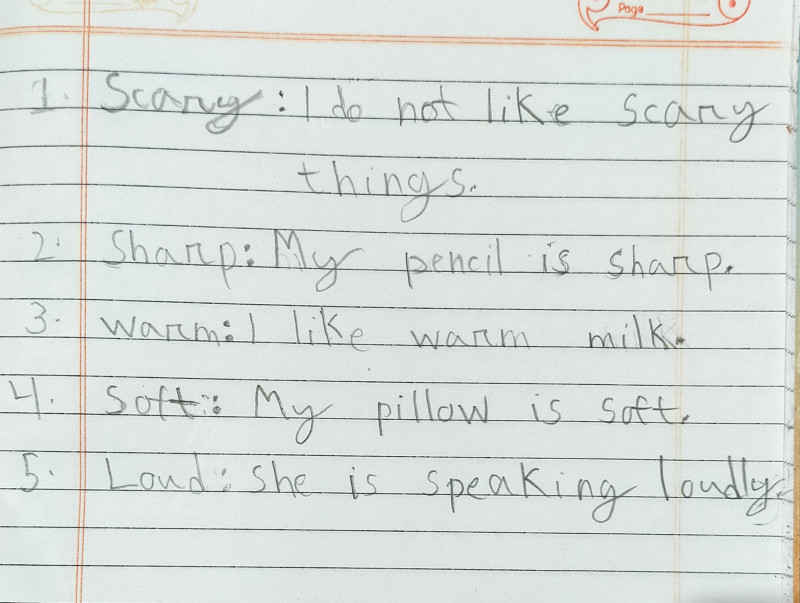 Page
1. Scary: I do not like scary
things.
2. Sharp: My pencil is sharp.
3. Warm: I like warm milk.
4. Soft: My pillow is soft.
5. Loud: She is speaking loudly.